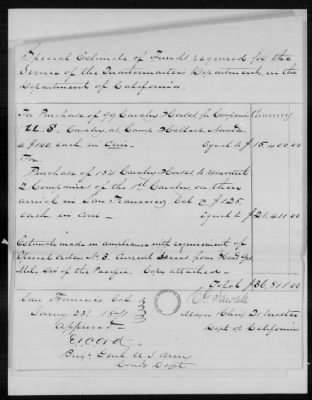 Special Estimate of Funds required for the
Service of the Quartermasters Department, in the
Department of California.
For Purchase of 99 Cavalry Horses for Companies
U.S. Cavalry at Camp Halleck Nevada
a $140. each in Coin Equal to $15.400.00
For
Purchase of 184 Cavalry Horses to remount
2 Companies of the 1st Cavalry, on their
arrival in San Francisco Cal a $125.
each in Coin Equal to $21.411.00
Estimate made in compliance with requirement of
Order No 3. Current Series from Hd Qrs
Mil. Div of the Pacific. Copy attached.
Total $36.811.00
San Francisco Cal
Jany 23, 1871
Approved
Brig Genl U.S. Army
Comdg Dept
Major Chief Qr. Master
Dept of California